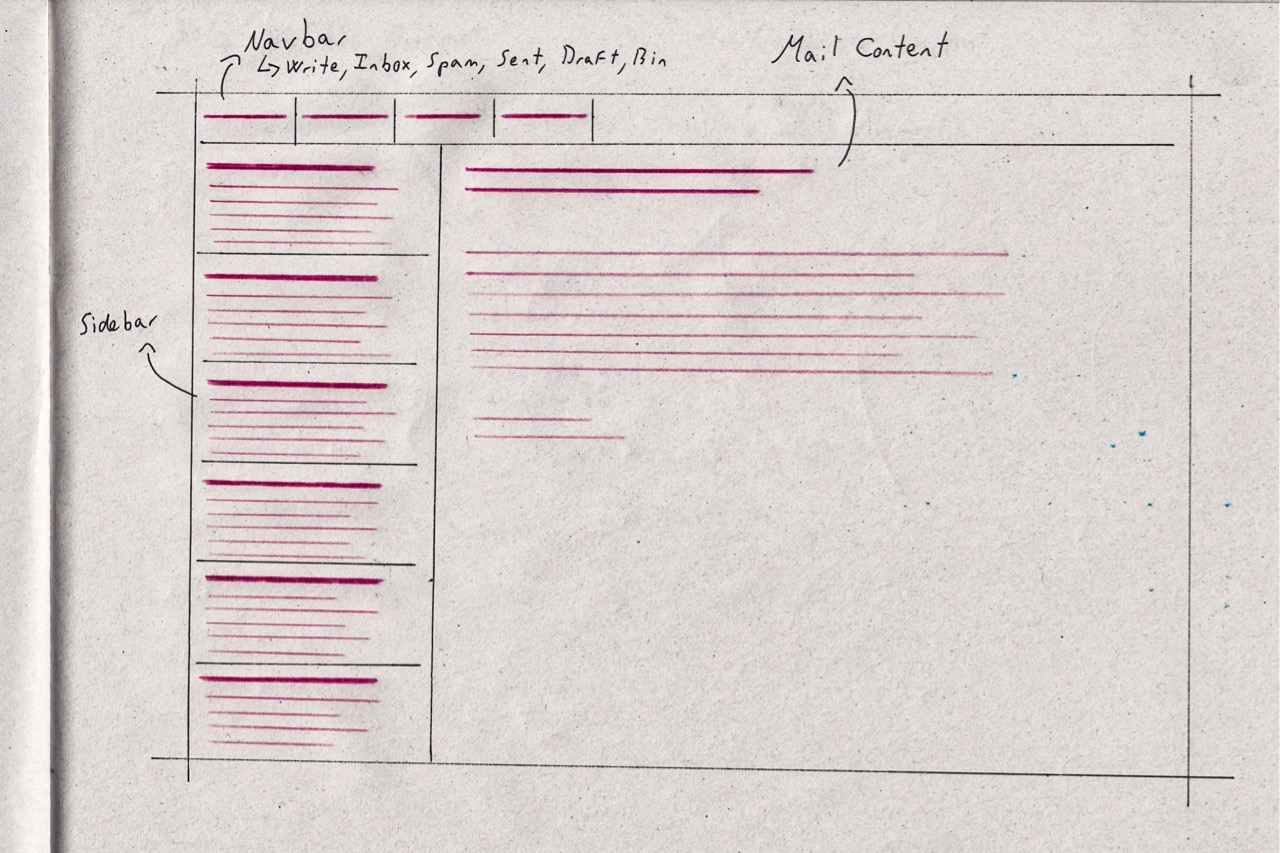 Navbar
↳ Write, Inbox, Spam, Sent, Draft, Bin
Mail Content
Sidebar